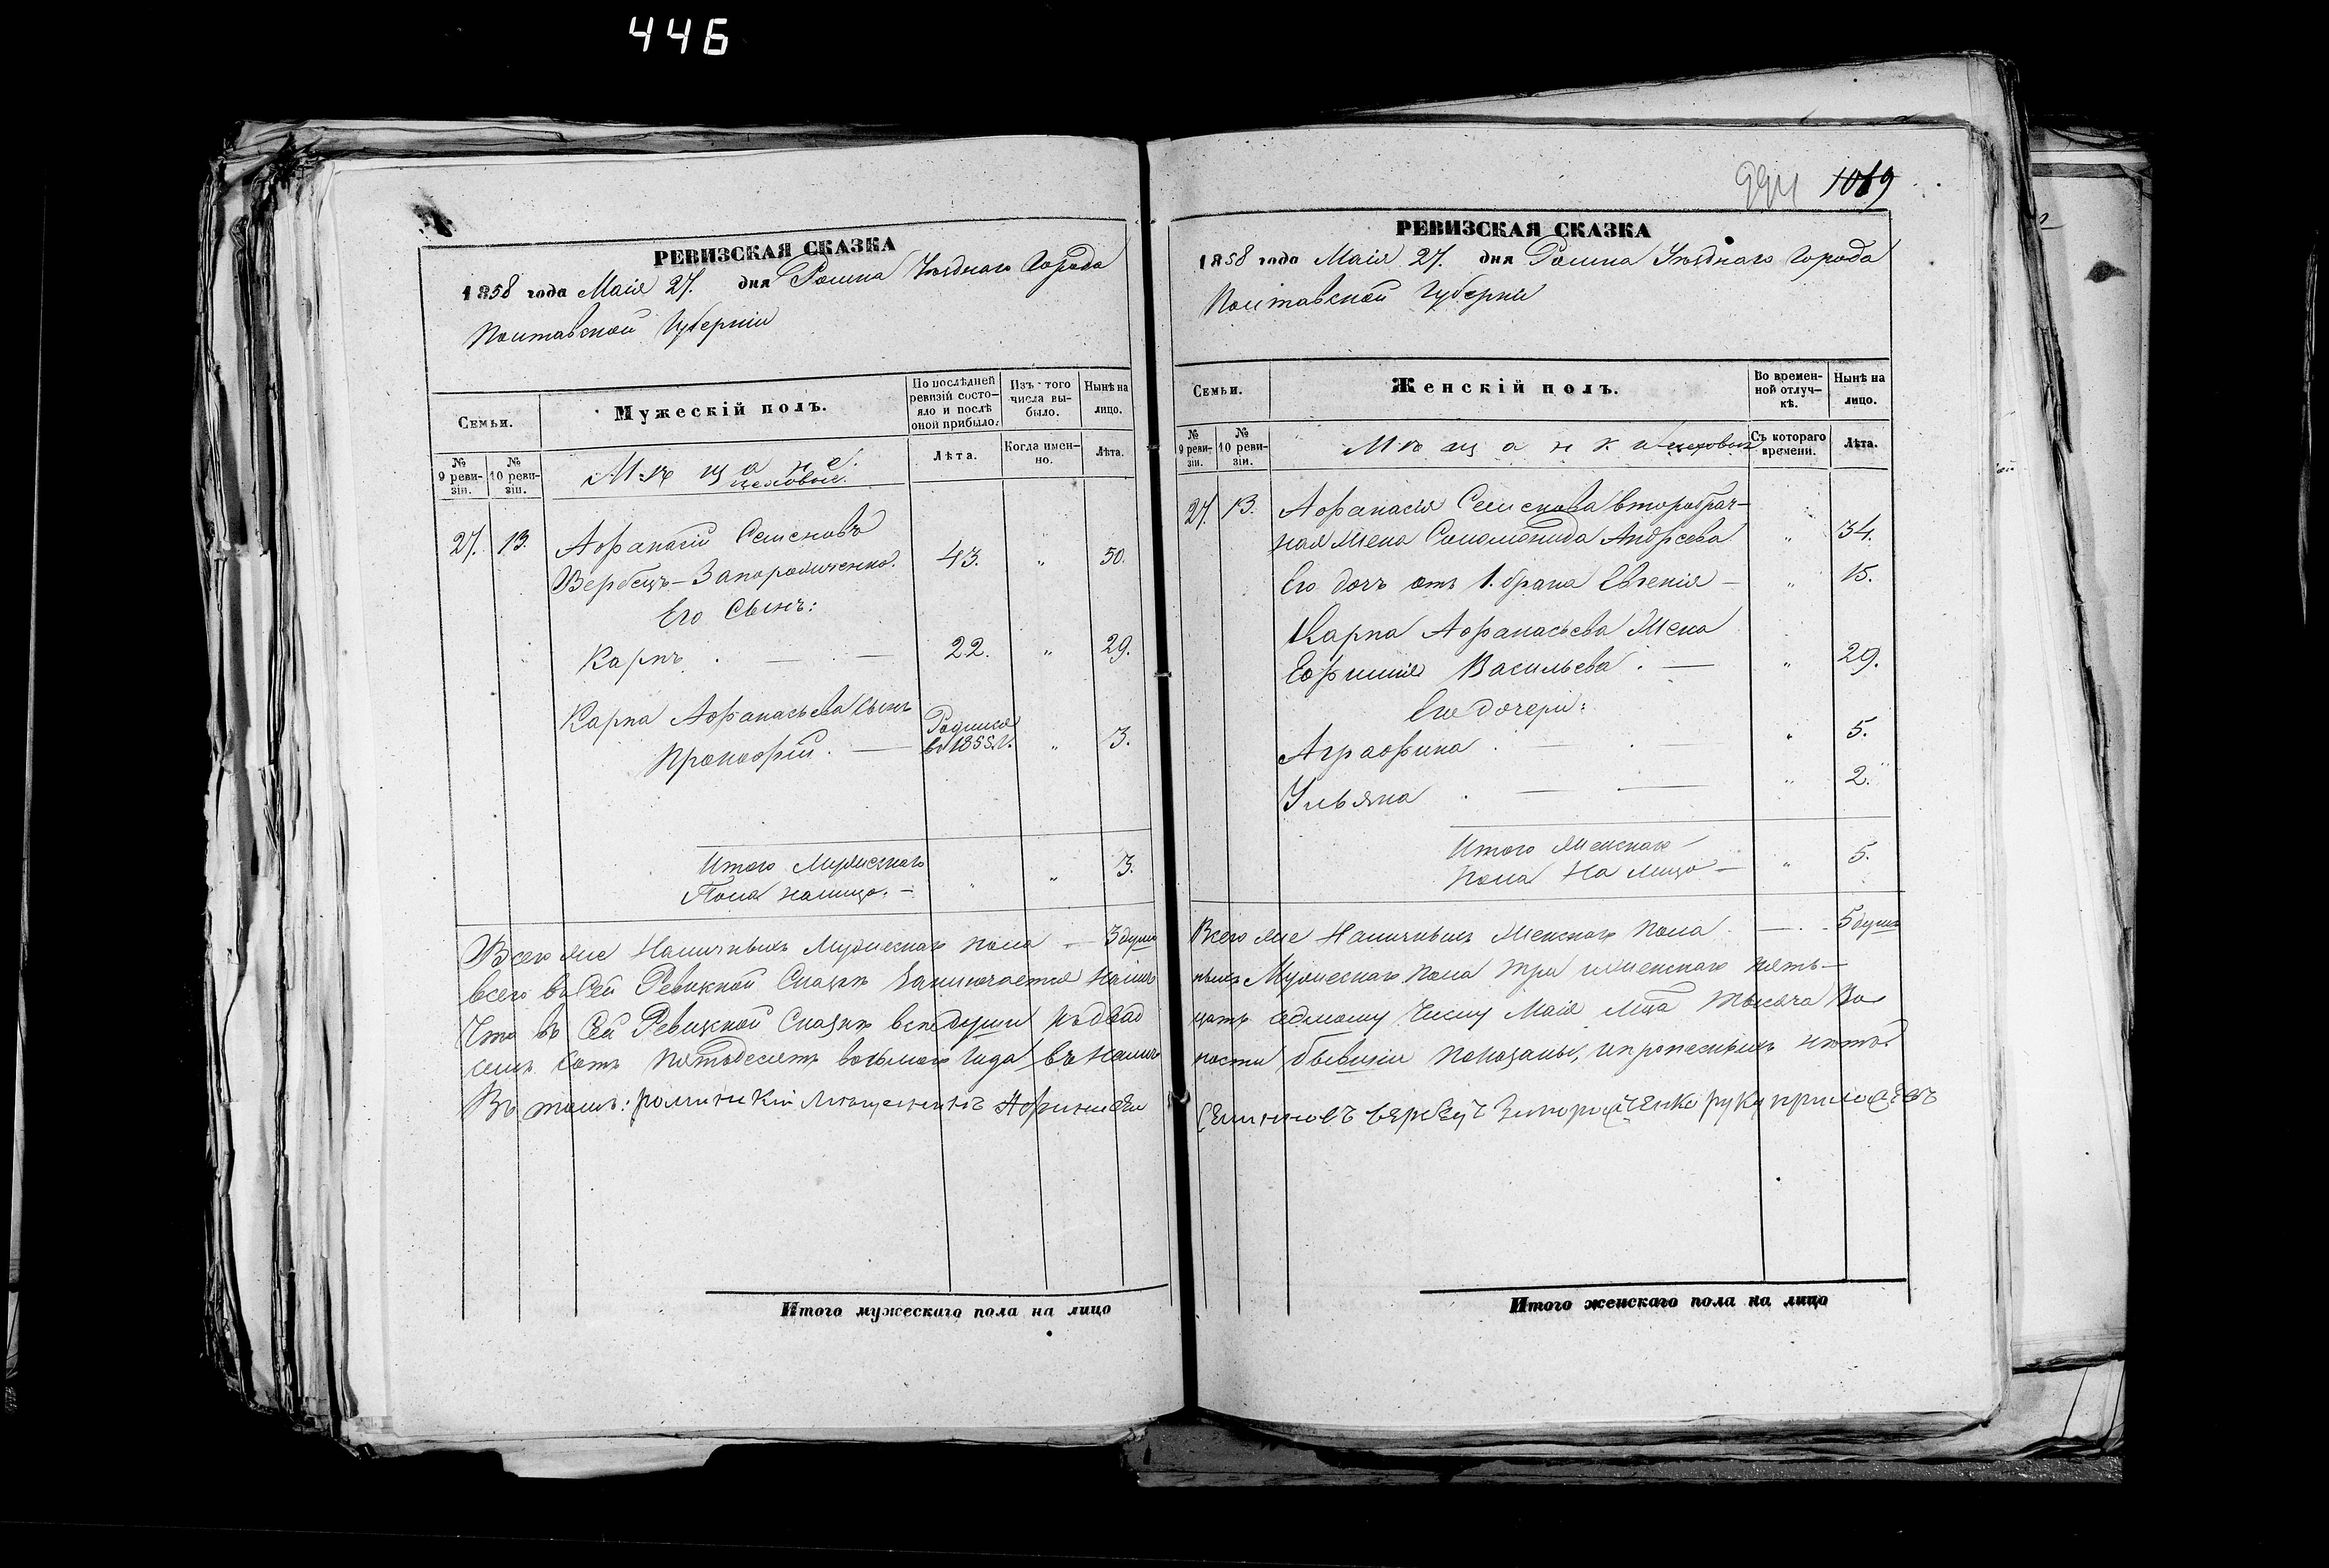 446
РЕВИЗСКАЯ СКАЗКА
1858 года Маія 27. дня Ромна Уѣзднаго Города
Полтавской Губерніи
Семьи.
Мужескій полъ.
По послѣдней ревизій состояло и послѣ оной прибыло.
Изъ того числа выбыло.
Нынѣ на лицо.
№ 9 ревизіи.
№ 10 ревизіи.
Мѣщане
цеховые.
Лѣта.
Когда именно.
Лѣта.
27. 13. Афанасій Семеновъ
Вербецъ-Запорожченко. 43. " 50.
Его Сынъ:
Карпъ. 22. " 29.
Карпа Афанасьева сынъ
Прокофій. Родился въ 1855.г. " 3.
Итого Мужескаго
Пола налицо. " " 3.
Всего же Наличныхъ Мужескаго пола 3 души
всего въ Сей Ревизкой Сказкѣ Заключается налич
Что въ Сей Ревизкой Сказкѣ всѣ души къ двад
семь сотъ пятьдесятъ восьмого Года въ налич
Въ томъ: роменский мѣщенинъ Афанисей
994 1069
РЕВИЗСКАЯ СКАЗКА
1858 года Маія 27. дня Ромна Уѣзднаго Города
Полтавской Губерніи
Семьи.
Женскій полъ.
Во временной отлучкѣ.
Нынѣ на лицо.
№ 9 ревизіи.
№ 10 ревизіи.
Мѣщанки цеховыя
Съ котораго времени.
Лѣта.
27. 13. Афанасія Семенова второбрач-
ная жена Соломонида Андреева " 34.
Его дочь отъ 1. брака Евгенія " 15.
Карпа Афанасьева Жена
Ефимія Васильева. " 29.
Его дочери:
Аграфина " 5.
Ульяна " 2.
Итого Женскаго
Пола На лицо " 5.
Всего же Наличныхъ Женскаго Пола 5 душъ
ныхъ Мужескаго пола три и женскаго пять
цать седмому Числу Маія мца тысяча Во
ности бывшіи показаны, и пропесныхъ нѣтъ.
Семиновъ вербецъ Запорожченко руку приложевъ
Итого мужескаго пола на лицо
Итого женскаго пола на лицо